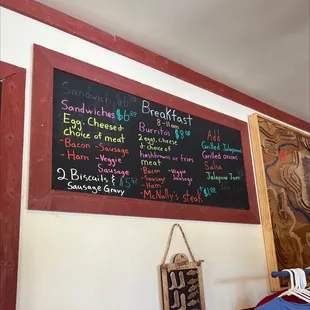 Sandwich $6
Breakfast
8-11am
Sandwiches $6
Egg, Cheese &
choice of meat
-Bacon -Sausage
-Ham -Veggie
Sausage
2 Biscuits &
Sausage Gravy
Burritos $8
2 eggs, cheese
& choice of
hashbrowns or tots
meat
-Bacon -Veggie
-Sausage Sausage
-Ham
-McNally's steak
Add
Grilled Jalapeno
Grilled Onions
Salsa
Jalapeno Jam
$1